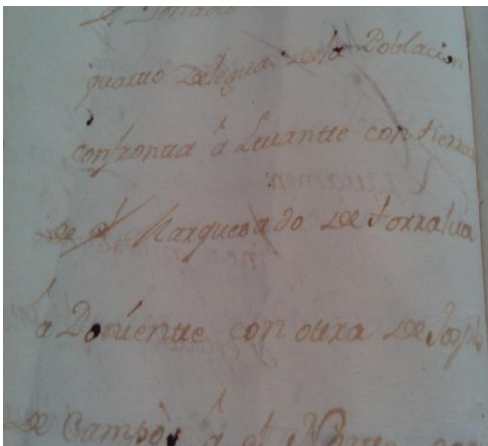 quarto de legua de la Poblacion
confronta á Levante con tierra
de el Marquesado de Torralva
á Poniente con otra de Joseph
de Campos á el Norte con